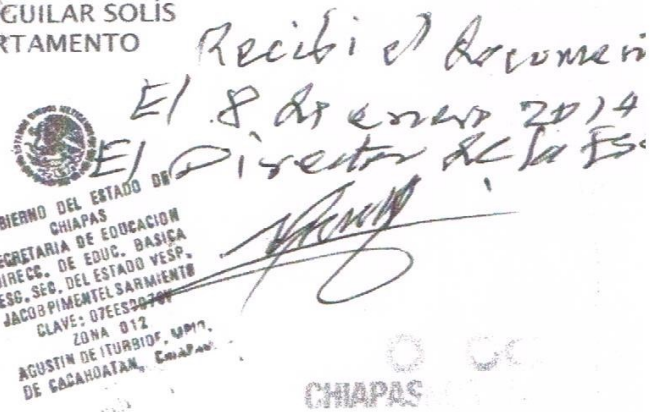 GUILAR SOLÍS
RTAMENTO
Recibi el documen
El 8 de enero 2014
El Director de la Es
BIERNO DEL ESTADO DE
CHIAPAS
SECRETARIA DE EDUCACION
DIRECC. DE EDUC. BASICA
ESC. SEC. DEL ESTADO VESP.
JACOB PIMENTEL SARMIENTO
CLAVE: 07EES
ZONA 012
AGUSTIN DE ITURBIDE, MPIO.
DE CACAHOATAN, CHIAPAS
CHIAPAS